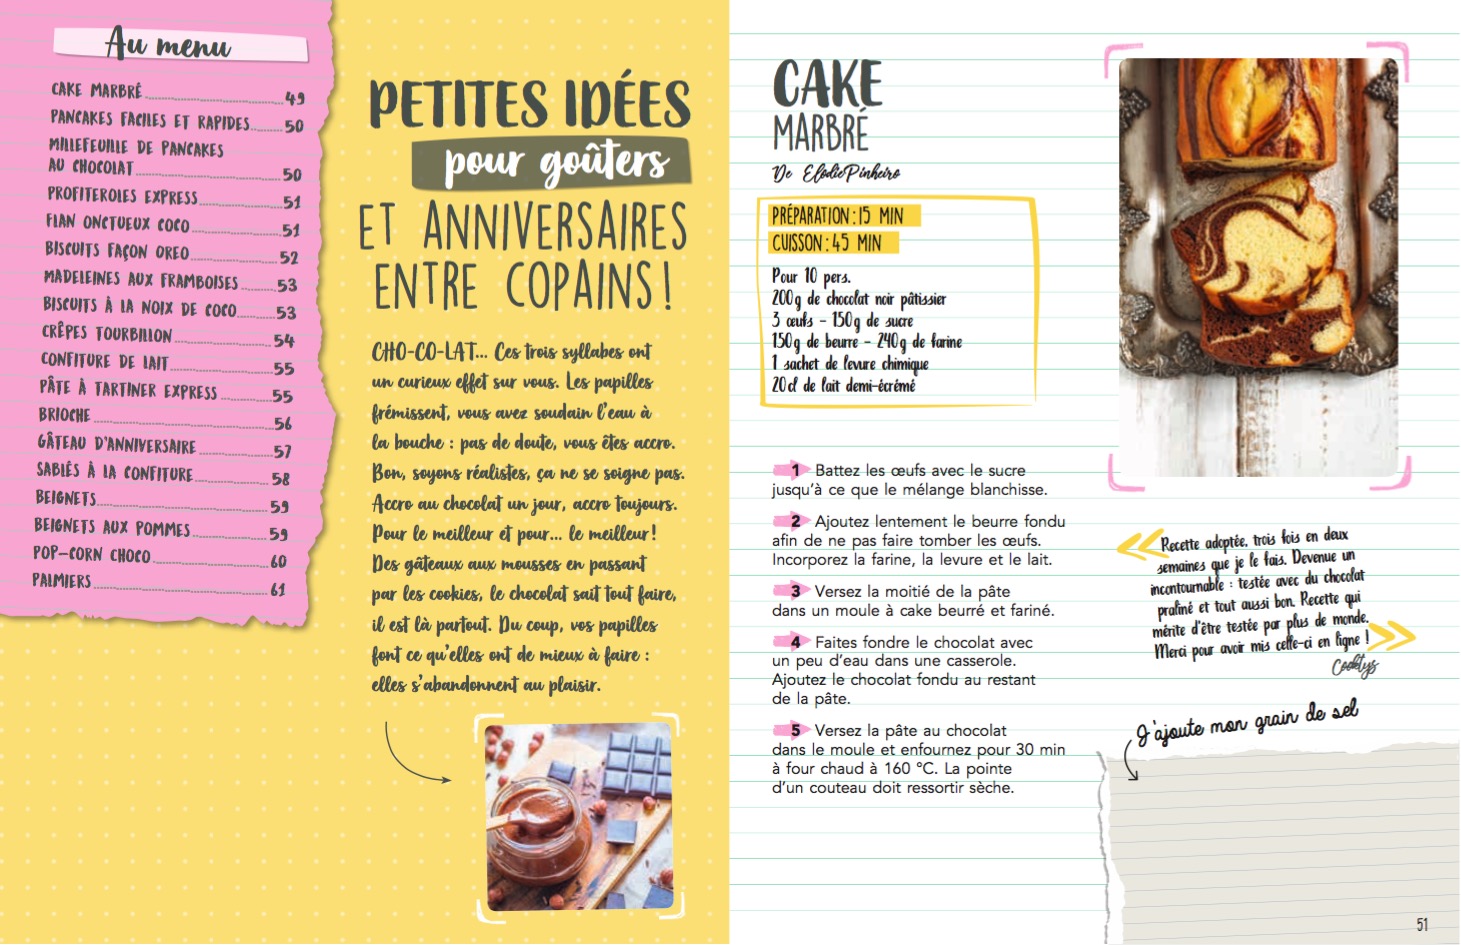 Au menu
CAKE MARBRÉ 49
PANCAKES FACILES ET RAPIDES 50
MILLEFEUILLE DE PANCAKES
AU CHOCOLAT 50
PROFITEROLES EXPRESS 51
FLAN ONCTUEUX COCO 51
BISCUITS FAÇON OREO 52
MADELEINES AUX FRAMBOISES 53
BISCUITS À LA NOIX DE COCO 53
CRÊPES TOURBILLON 54
CONFITURE DE LAIT 55
PÂTE À TARTINER EXPRESS 55
BRIOCHE 56
GÂTEAU D'ANNIVERSAIRE 57
SABLÉS À LA CONFITURE 58
BEIGNETS 59
BEIGNETS AUX POMMES 59
POP-CORN CHOCO 60
PALMIERS 61
PETITES IDÉES
pour goûters
ET ANNIVERSAIRES
ENTRE COPAINS !
CHO-CO-LAT... Ces trois syllabes ont
un curieux effet sur vous. Les papilles
frémissent, vous avez soudain l'eau à
la bouche : pas de doute, vous êtes accro.
Bon, soyons réalistes, ça ne se soigne pas.
Accro au chocolat un jour, accro toujours.
Pour le meilleur et pour... le meilleur !
Des gâteaux aux mousses en passant
par les cookies, le chocolat sait tout faire,
il est là partout. Du coup, vos papilles
font ce qu'elles ont de mieux à faire :
elles s'abandonnent au plaisir.
CAKE
MARBRÉ
De ElodiePinheiro
PRÉPARATION : 15 MIN
CUISSON : 45 MIN
Pour 10 pers.
200 g de chocolat noir pâtissier
3 œufs – 150 g de sucre
150 g de beurre – 240 g de farine
1 sachet de levure chimique
20 cl de lait demi-écrémé
1 Battez les œufs avec le sucre
jusqu'à ce que le mélange blanchisse.
2 Ajoutez lentement le beurre fondu
afin de ne pas faire tomber les œufs.
Incorporez la farine, la levure et le lait.
3 Versez la moitié de la pâte
dans un moule à cake beurré et fariné.
4 Faites fondre le chocolat avec
un peu d'eau dans une casserole.
Ajoutez le chocolat fondu au restant
de la pâte.
5 Versez la pâte au chocolat
dans le moule et enfournez pour 30 min
à four chaud à 160 °C. La pointe
d'un couteau doit ressortir sèche.
« Recette adoptée, trois fois en deux
semaines que je le fais. Devenue un
incontournable : testée avec du chocolat
praliné et tout aussi bon. Recette qui
mérite d'être testée par plus de monde.
Merci pour avoir mis celle-ci en ligne ! »
J'ajoute mon grain de sel
51